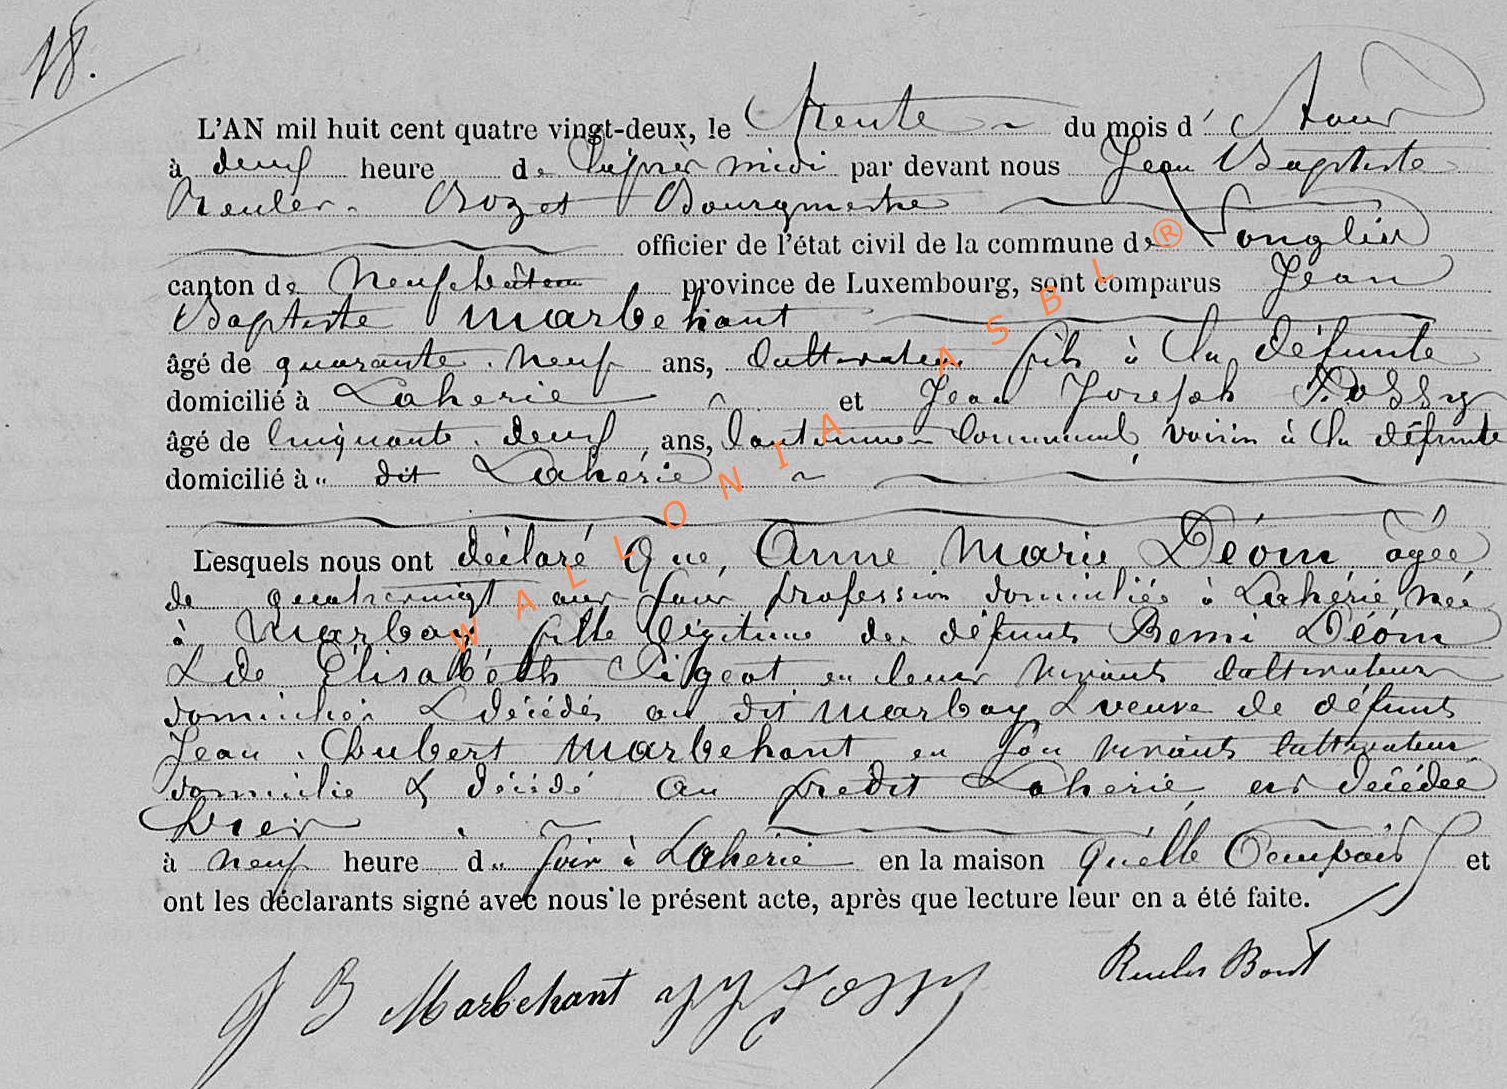 18.
L'AN mil huit cent quatre vingt-deux, le trente du mois d' Aout
à deux heure de l'après midi par devant nous Jean Baptiste
Reuler Bozet Bourgmestre
officier de l'état civil de la commune de Longlier
canton de Neufchâteau province de Luxembourg, sont comparus Jean
Baptiste Marbehant
âgé de quarante neuf ans, Cultivateur fils à la défunte
domicilié à Lahérie et Jean Joseph Possy
âgé de Cinquante deux ans, Cantonnier Communal voisin à la défunte
domicilié à dit Lahérie
Lesquels nous ont déclaré que Anne Marie Déom agée
de quatrevingt ans sans profession domiciliée à Lahérié née
à Marbay fille légitime des défunts Remi Déom
& de Élisabéth en leur vivants Cultivateurs
domiciliés & décédés au dit Marbay & veuve de défunts
Jean Hubert Marbehant en son vivants Cultivateur
domicilié & décédé au predit Lahérié, est décédée
hier
à neuf heure du soir à Lahérié en la maison qu'elle Occupait et
ont les déclarants signé avec nous le présent acte, après que lecture leur en a été faite.
J B Marbehant JJ Possy
Reuler Bozet
WALLONIA ASBL ®